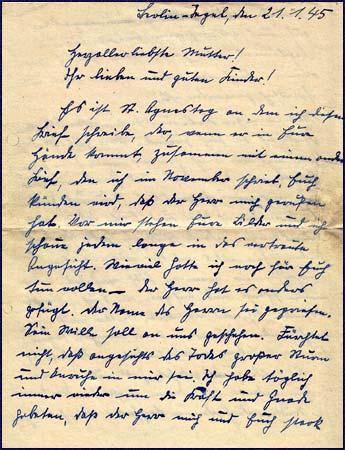 Berlin-Tegel, den 21.1.45
Herzallerliebste Mutter!
Ihr lieben und guten Kinder!
Es ist St. Agnestag an dem ich diesen
Brief schreibe, der, wenn er in Eure
Hände kommt, zusammen mit einem andern
Brief, den ich im November schrieb, Euch
künden wird, daß der Herr mich gerufen
hat. Vor mir stehen Eure Bilder und ich
schaue jedem lange in das vertraute
Angesicht. Wieviel hatte ich noch für Euch
tun wollen – der Herr hat es anders
gefügt. Der Name des Herrn sei gepriesen.
Sein Wille soll an uns geschehen. Fürchtet
nicht, daß angesichts des Todes großer Sturm
und Unruhe in mir sei. Ich habe täglich
immer wieder um die Kraft und Gnade
gebeten, daß der Herr mich und Euch stark